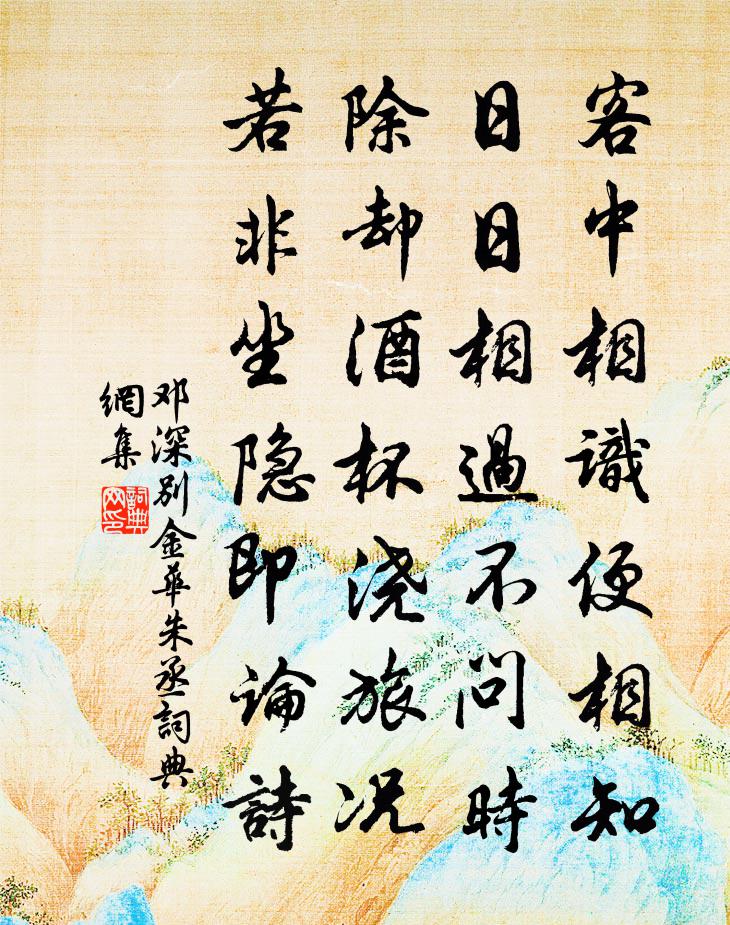 客中相識便相知
日日相過不问時
除却酒杯浇旅况
若非坐隐即论詩
邓深别金華朱丞詞典
網集
詞典
网印